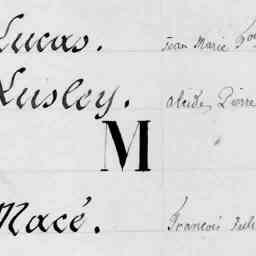 Lucas. Jean Marie
Lusley. Alcide Pierre
"
M
Macé. François